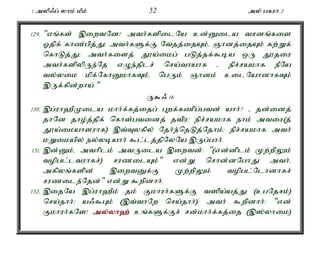 1 அலிஃப் லாம் மீம் 52 அல் பகரா 2
129. "எங்கள் இறைவனே! அவர்களிடையே உன்னுடைய வசனங்களை
ஓதிக் காண்பித்து; அவர்களுக்கு வேதத்தையும், ஞானத்தையும் கற்றுக்
கொடுத்து; அவர்களைத் தூய்மைப் படுத்தக்கூடிய ஒரு தூதரை
அவர்களிலிருந்தே எழுந்திடச் செய்வாயாக - நிச்சயமாக நீயே
வல்லமை மிக்கோனுமாகவும், பெரும் ஞானம் உடையோனாகவும்
இருக்கின்றாய்."
ருகூஃ 16
130. இப்ராஹீமுடைய மார்க்கத்தைப் புறக்கணிப்பவன் யார்? - தன்னைத்
தானே தாழ்த்திக் கொள்பவனைத் தவிர; நிச்சயமாக நாம் அவரை(த்
தூய்மையாளராக) இவ்வுலகில் தேர்ந்தெடுத்தோம்; நிச்சயமாக அவர்
மறுமையில் நல்லடியார் கூட்டத்திலேயே இருப்பார்.
131. இன்னும், அவரிடம் அவருடைய இறைவன்: "(என்னிடம் முற்றிலும்
வழிபட்டவராகச்) சரணடையும்" என்று சொன்னபோது அவர்,
அகிலங்களின் இறைவனுக்கு முற்றிலும் வழிபட்டேனாகச்
சரணடைந்தேன்" என்று கூறினார்.
132. இதையே இப்ராஹீம் தம் குமாரர்களுக்கு வஸிய்யத்து (உபதேசம்)
செய்தார்; யஃகூபும் (இவ்வாறே செய்தார்); அவர் கூறினார்: "என்
குமாரர்களே! அல்லாஹ் உங்களுக்குச் சன்மார்க்கத்தை (இஸ்லாமை)